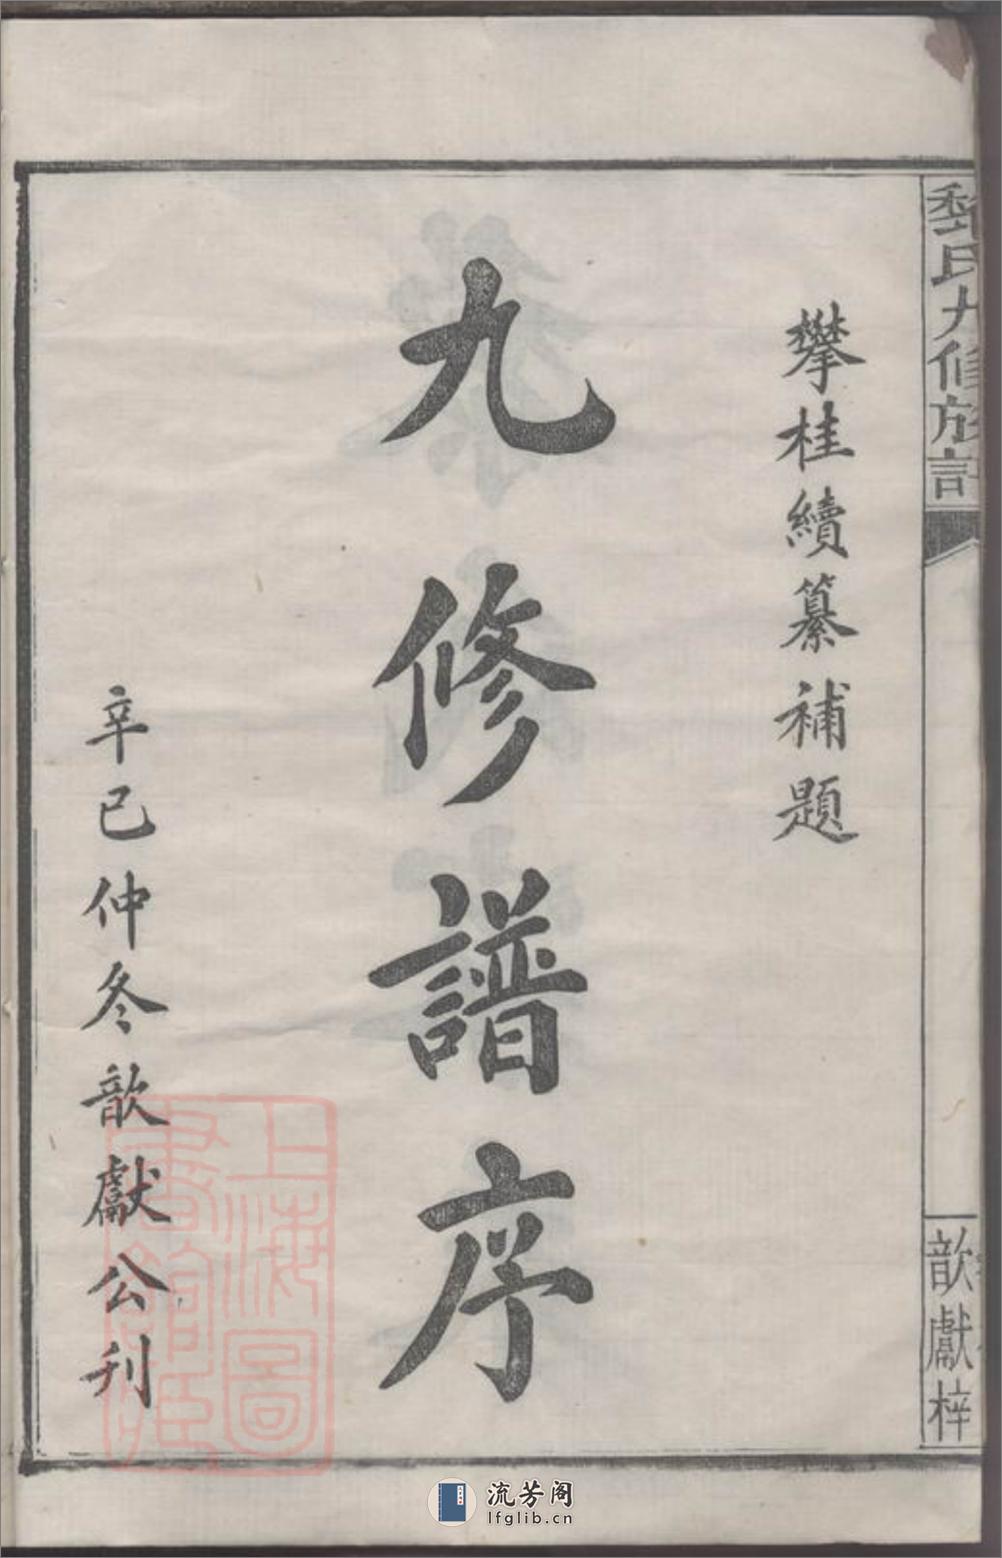 氏九修族
歆獻梓
攀桂續纂補題
九修譜序
辛巳仲冬歆獻公刊
上海圖
書館藏
流芳阁
lfglib.cn